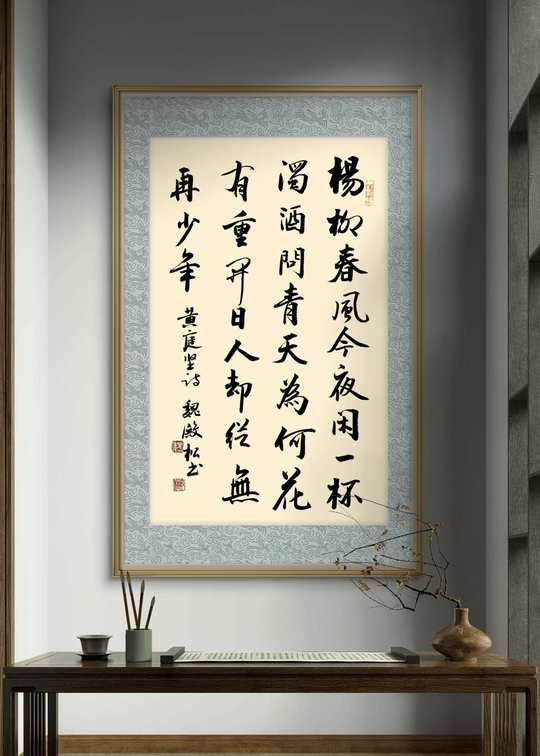 楊柳春風今夜闲一杯
濁酒問青天為何花
有重開日人却從無
再少年
黄庭坚诗 魏殿松书